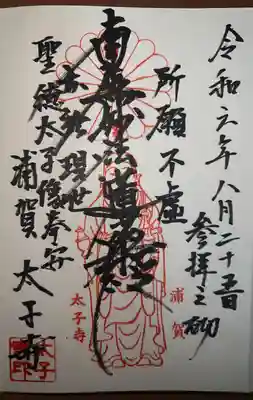 令和六年八月二十五日
参拝之砌
所願不虚
南無妙法蓮華経
現世
聖徳太子像奉安
浦賀 太子寺
浦賀
太子寺